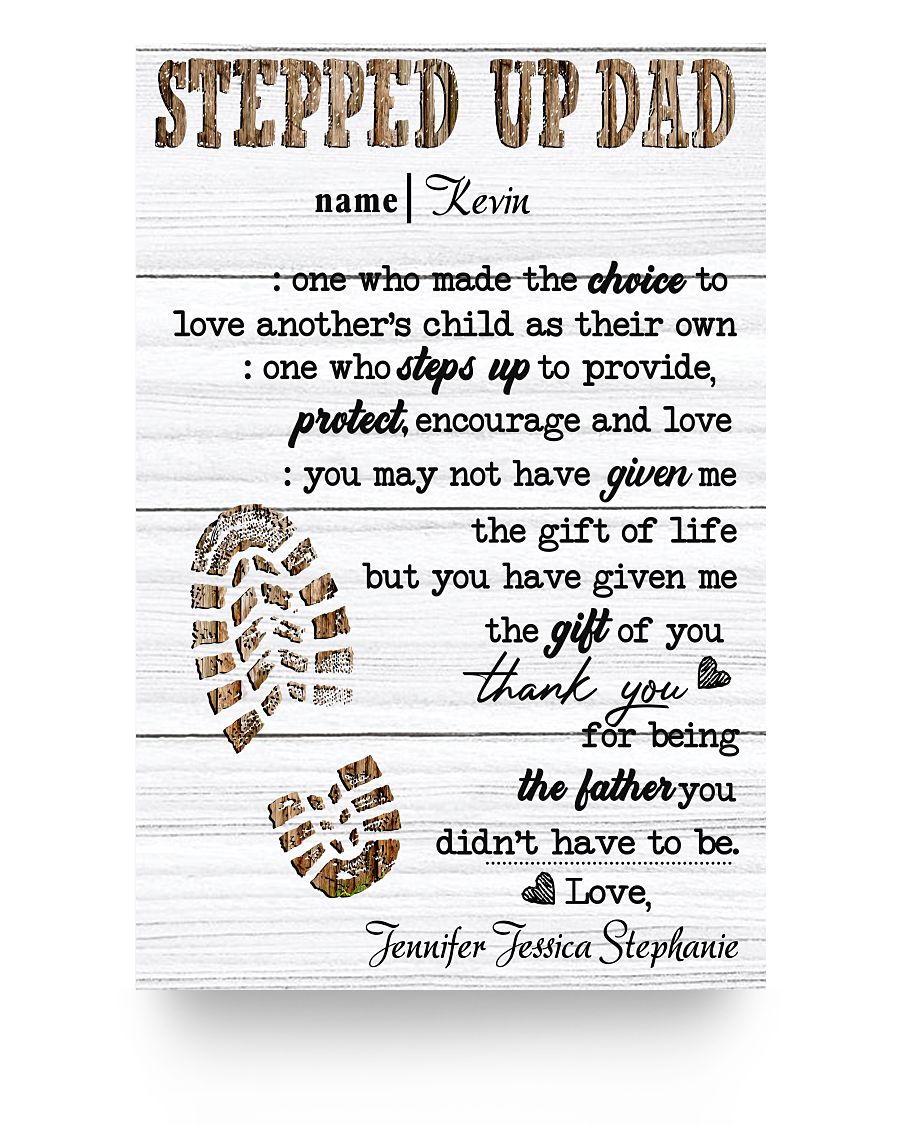 STEPPED UP DAD
name| Kevin
: one who made the choice to
love another's child as their own
: one who steps up to provide,
protect, encourage and love
: you may not have given me
the gift of life
but you have given me
the gift of you
thank you
for being
the father you
didn't have to be.
Love,
Jennifer Jessica Stephanie